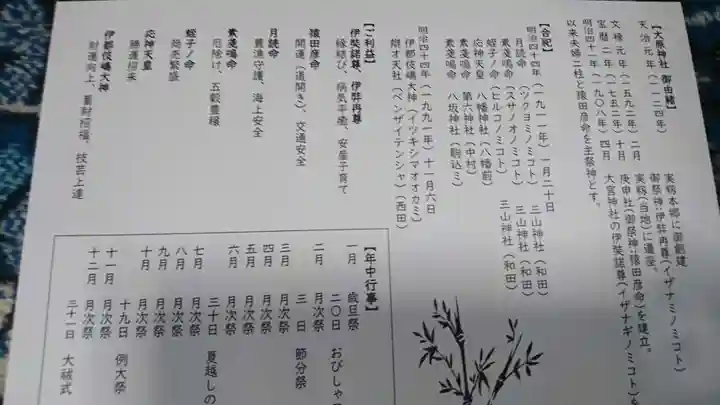 【大原神社 御由緒】
天治元年(一一二四年)
文禄元年(一五九二年)二月
宝暦二年(一七五二年)十月
明治四十一年(一九〇八年)四月
実籾本郷に御創建
御祭神:伊弉冉尊(イザナミノミコト)
実籾(当地)に遷座。
庚申社(御祭神:猿田彦命)を建立。
大宮神社の伊弉諾尊(イザナギノミコト)を
以来夫婦二柱と猿田彦命を主祭神とす。
【合祀】
明治四十四年(一九一一年)一月二十日
月読命(ツクヨミノミコト) 三山神社(和田)
素戔鳴命(スサノオノミコト) 三山神社(和田)
蛭子ノ命(ヒルコノミコト) 三山神社(和田)
応神天皇 八幡神社(八幡前)
素戔鳴命 第六神社(中村)
素戔鳴命 八坂神社(駒込ミ)
明治四十四年(一九九一年)十一月六日
伊都伎嶋大神(イツキシマオオカミ)
辯才天社(ベンザイテンシャ)(西田)
【ご利益】
伊弉諾尊、伊弉冉尊
縁結び、病気平癒、安産子育て
猿田彦命
開運(道開き)、交通安全
月読命
豊漁守護、海上安全
素戔鳴命
厄除け、五穀豊穣
蛭子ノ命
商売繁盛
応神天皇
勝運招来
伊都伎嶋大神
財運向上、蓄財招福、技芸上達
【年中行事】
一月 歳旦祭
二〇日 おびしゃ
二月 月次祭
三日 節分祭
三月 月次祭
四月 月次祭
五月 月次祭
六月 月次祭
三十日 夏越しの
七月 月次祭
八月 月次祭
九月 月次祭
十月 月次祭
十九日 例大祭
十一月 月次祭
十二月 月次祭
三十一日 大祓式